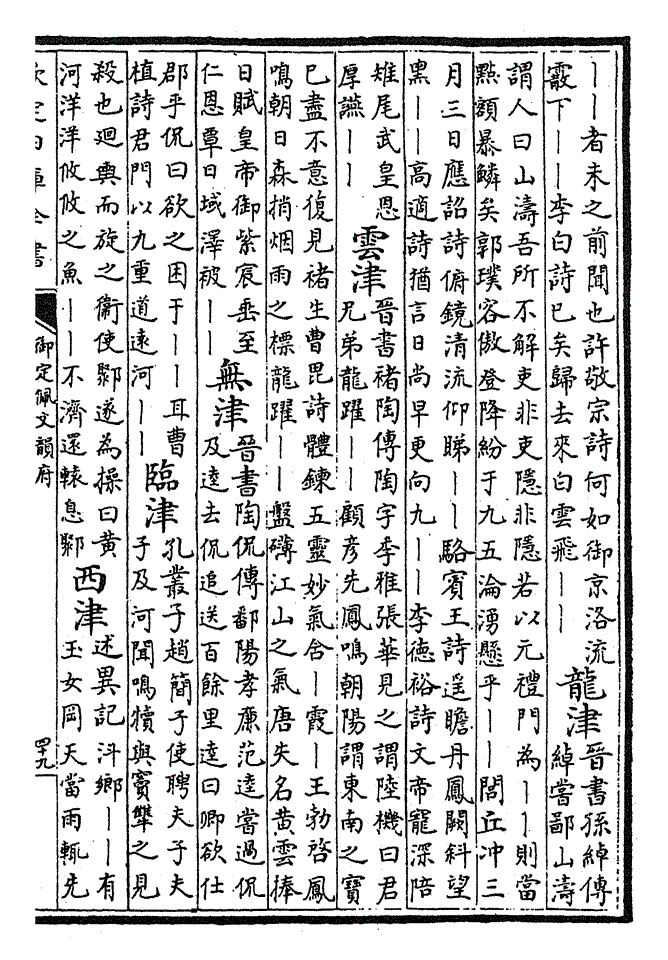 ——者未之前聞也許敬宗詩何如御京洛流
霰下——李白詩已矣歸去來白雲飛——
龍津
晉書孫綽傳
綽嘗鄙山濤
謂人曰山濤吾所不解吏非吏隱非隱若以元禮門為——則當
點額暴鱗矣郭璞客傲登降紛于九五淪湧懸乎——閭丘冲三
月三日應詔詩俯鏡清流仰睇——駱賓王詩遥瞻丹鳳闕斜望
黑——高適詩猶言日尚早更向九——李徳裕詩文帝寵深陪
雉尾武皇恩
厚讌——
雲津
晉書褚陶傳陶字季雅張華見之謂陸機曰君
兄弟龍躍——顧彦先鳳鳴朝陽謂東南之寶
已盡不意復見褚生曹毘詩體鍊五靈妙氣含—霞—王勃啓鳳
鳴朝日森捎烟雨之標龍躍——盤礴江山之氣唐失名黄雲捧
日賦皇帝御紫宸垂至
仁恩覃日域澤被——
無津
晉書陶侃傳鄱陽孝廉范逵嘗過侃
及逵去侃追送百餘里逵曰卿欲仕
郡乎侃曰欲之困于——耳曹
植詩君門以九重道遠河——
臨津
孔叢子趙簡子使聘夫子夫
子及河聞鳴犢與竇犨之見
殺也迴輿而旋之衞使鄹遂為操曰黄
河洋洋攸攸之魚——不濟還轅息鄹
西津
述異記鄉——有
玉女岡天當雨輒先
欽定四庫全書
御定佩文韻府
四十九